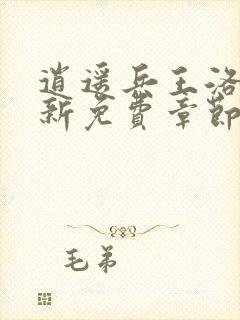 逍遥兵王洛
新免費章節
毛弟